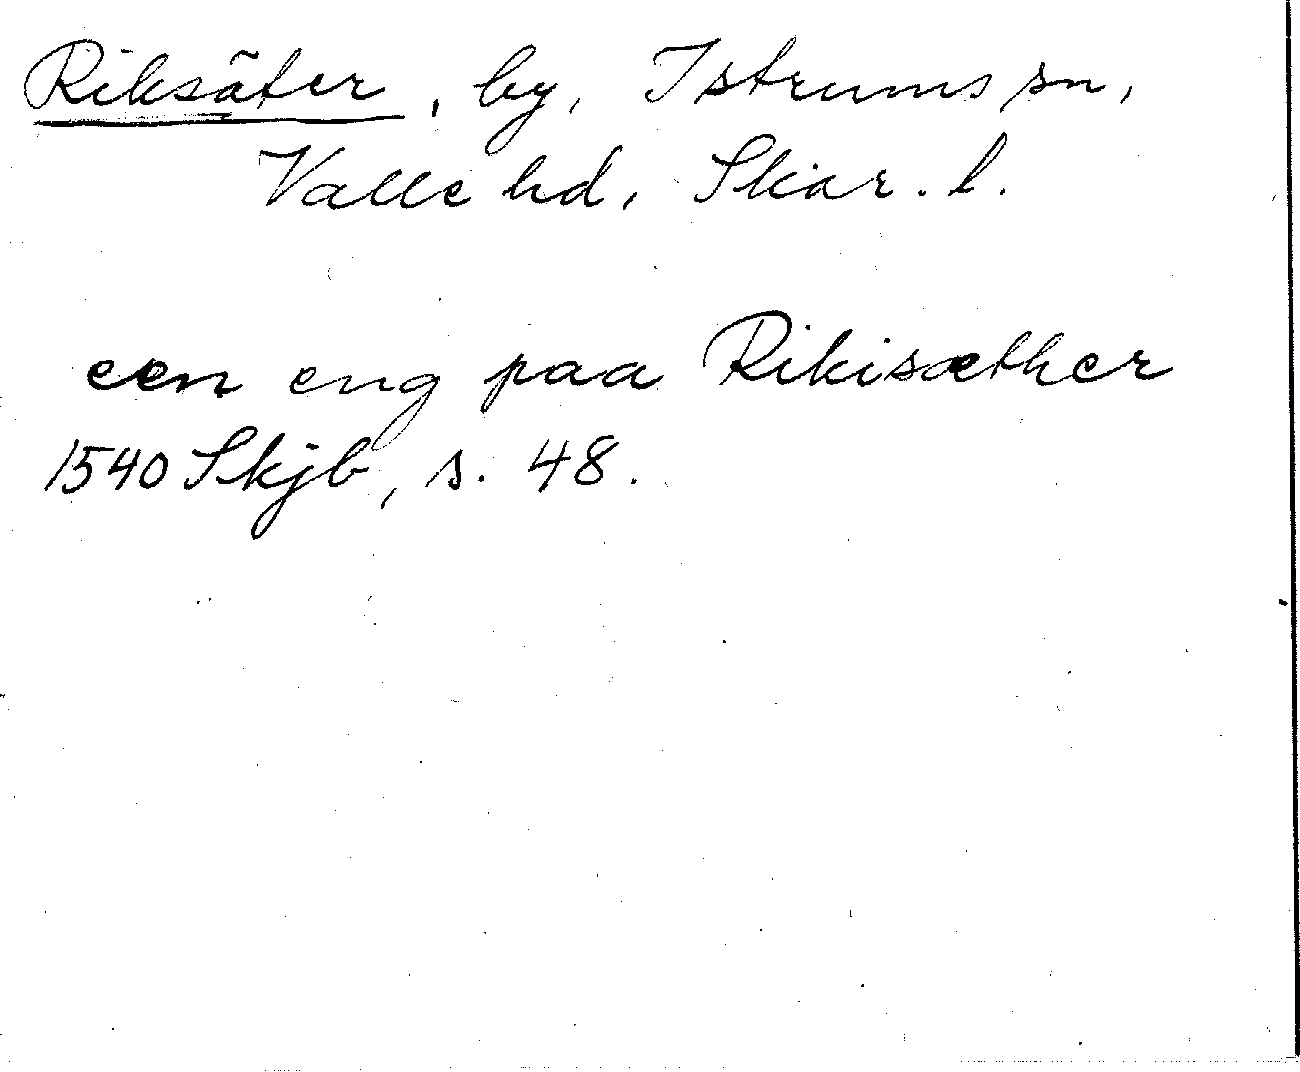 Riksäter, by, Istrums sn,
Valle hd, Skar. l.
een eng paa Rikisæther
1540 Skjb, s. 48.